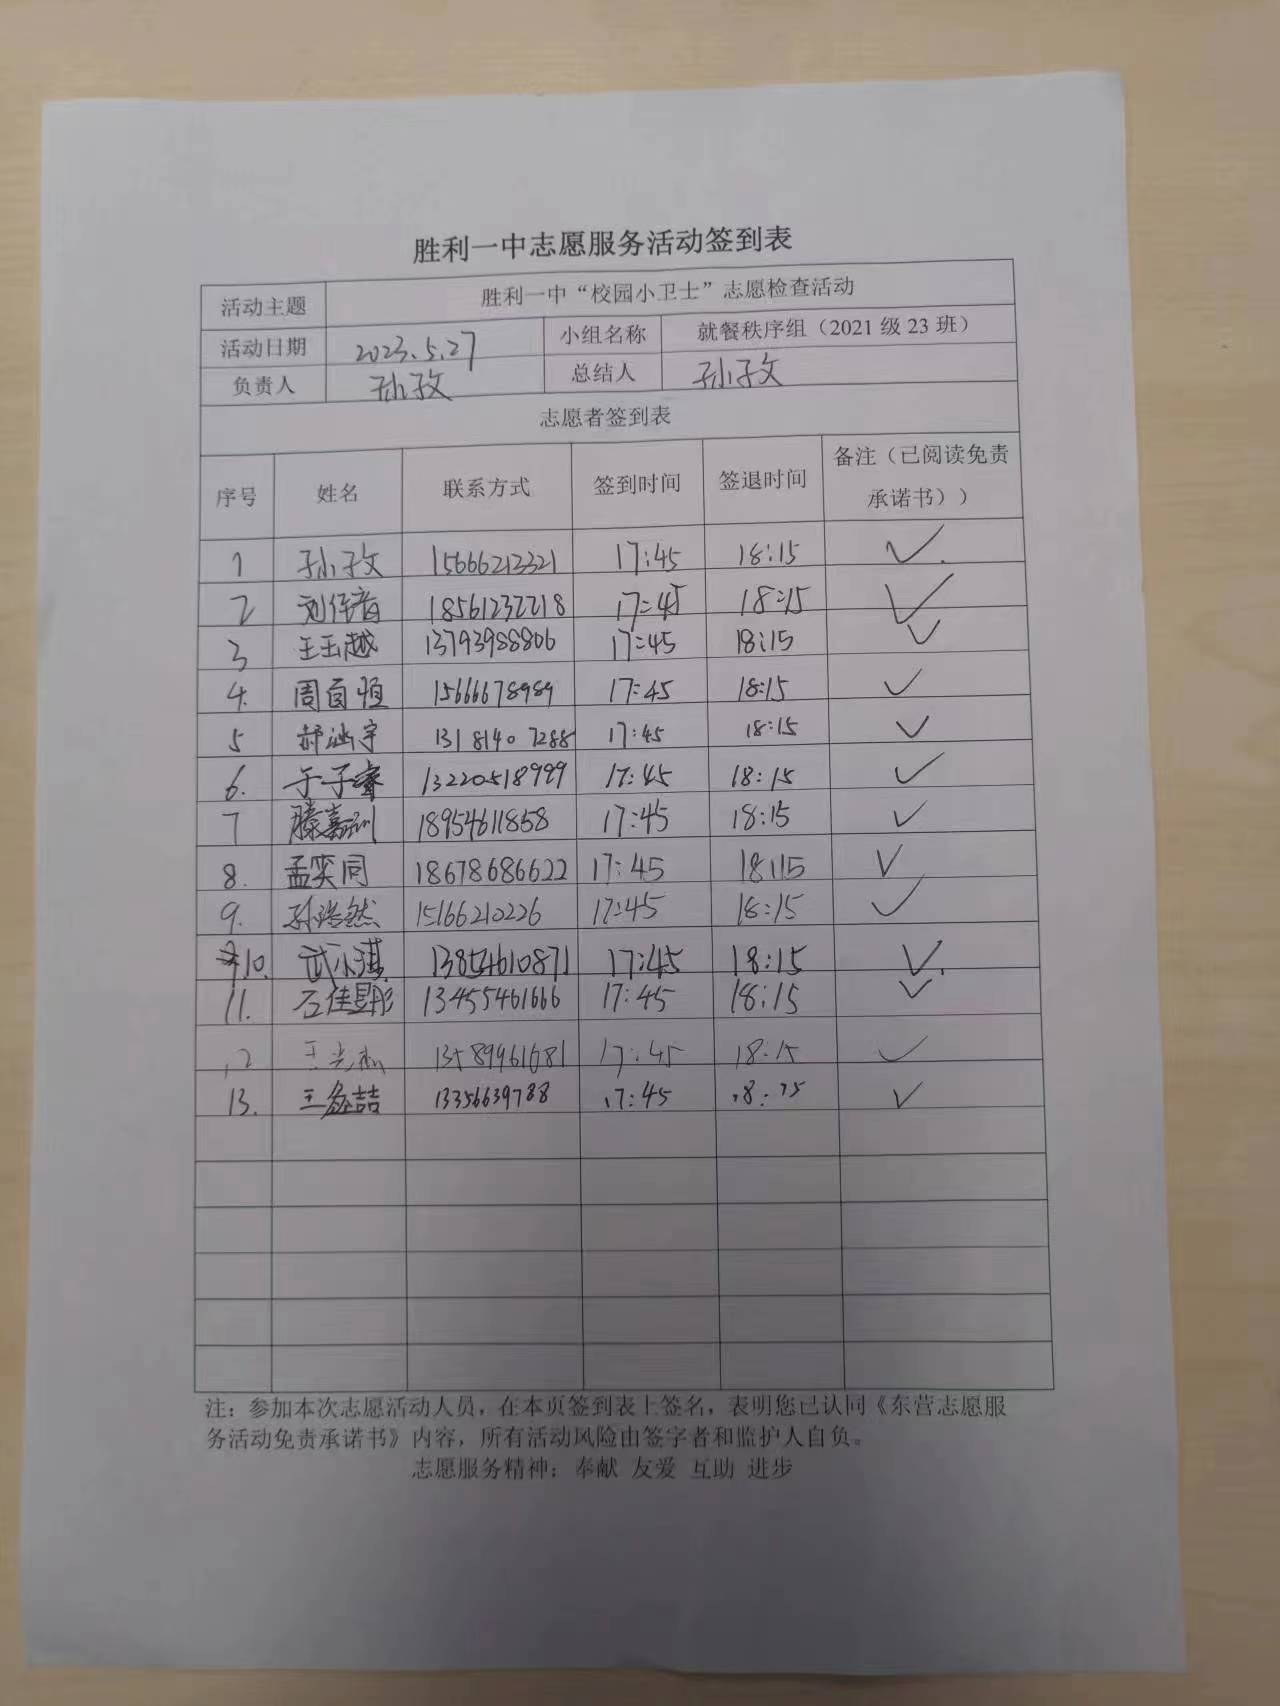 胜利一中志愿服务活动签到表
活动主题 胜利一中“校园小卫士”志愿检查活动
活动日期 2023.5.27 小组名称 就餐秩序组（2021 级 23 班）
负责人 孙孜文 总结人 孙孜文
志愿者签到表
序号 姓名 联系方式 签到时间 签退时间 备注（已阅读免责承诺书））
1 15666213321 17:45 18:15 ✓
2 18561232218 17:45 18:15 ✓
3 王玉越 13793988806 17:45 18:15 ✓
4. 周百恒 15666678989 17:45 18:15 ✓
5 郝涵宇 13181407288 17:45 18:15 ✓
6. 于子睿 13220518999 17:45 18:15 ✓
7 滕嘉 18954611858 17:45 18:15 ✓
8. 孟奕同 18678686622 17:45 18:15 ✓
9. 孙浩然 15166210226 17:45 18:15 ✓
10. 武小淇 13854610871 17:45 18:15 ✓
11. 石佳昱彤 13455461666 17:45 18:15 ✓
12 王 17:45 18:15 ✓
13. 王 喆 13356639788 17:45 18:15 ✓
注：参加本次志愿活动人员，在本页签到表上签名，表明您已认同《东营志愿服
务活动免责承诺书》内容，所有活动风险由签字者和监护人自负。
志愿服务精神：奉献 友爱 互助 进步